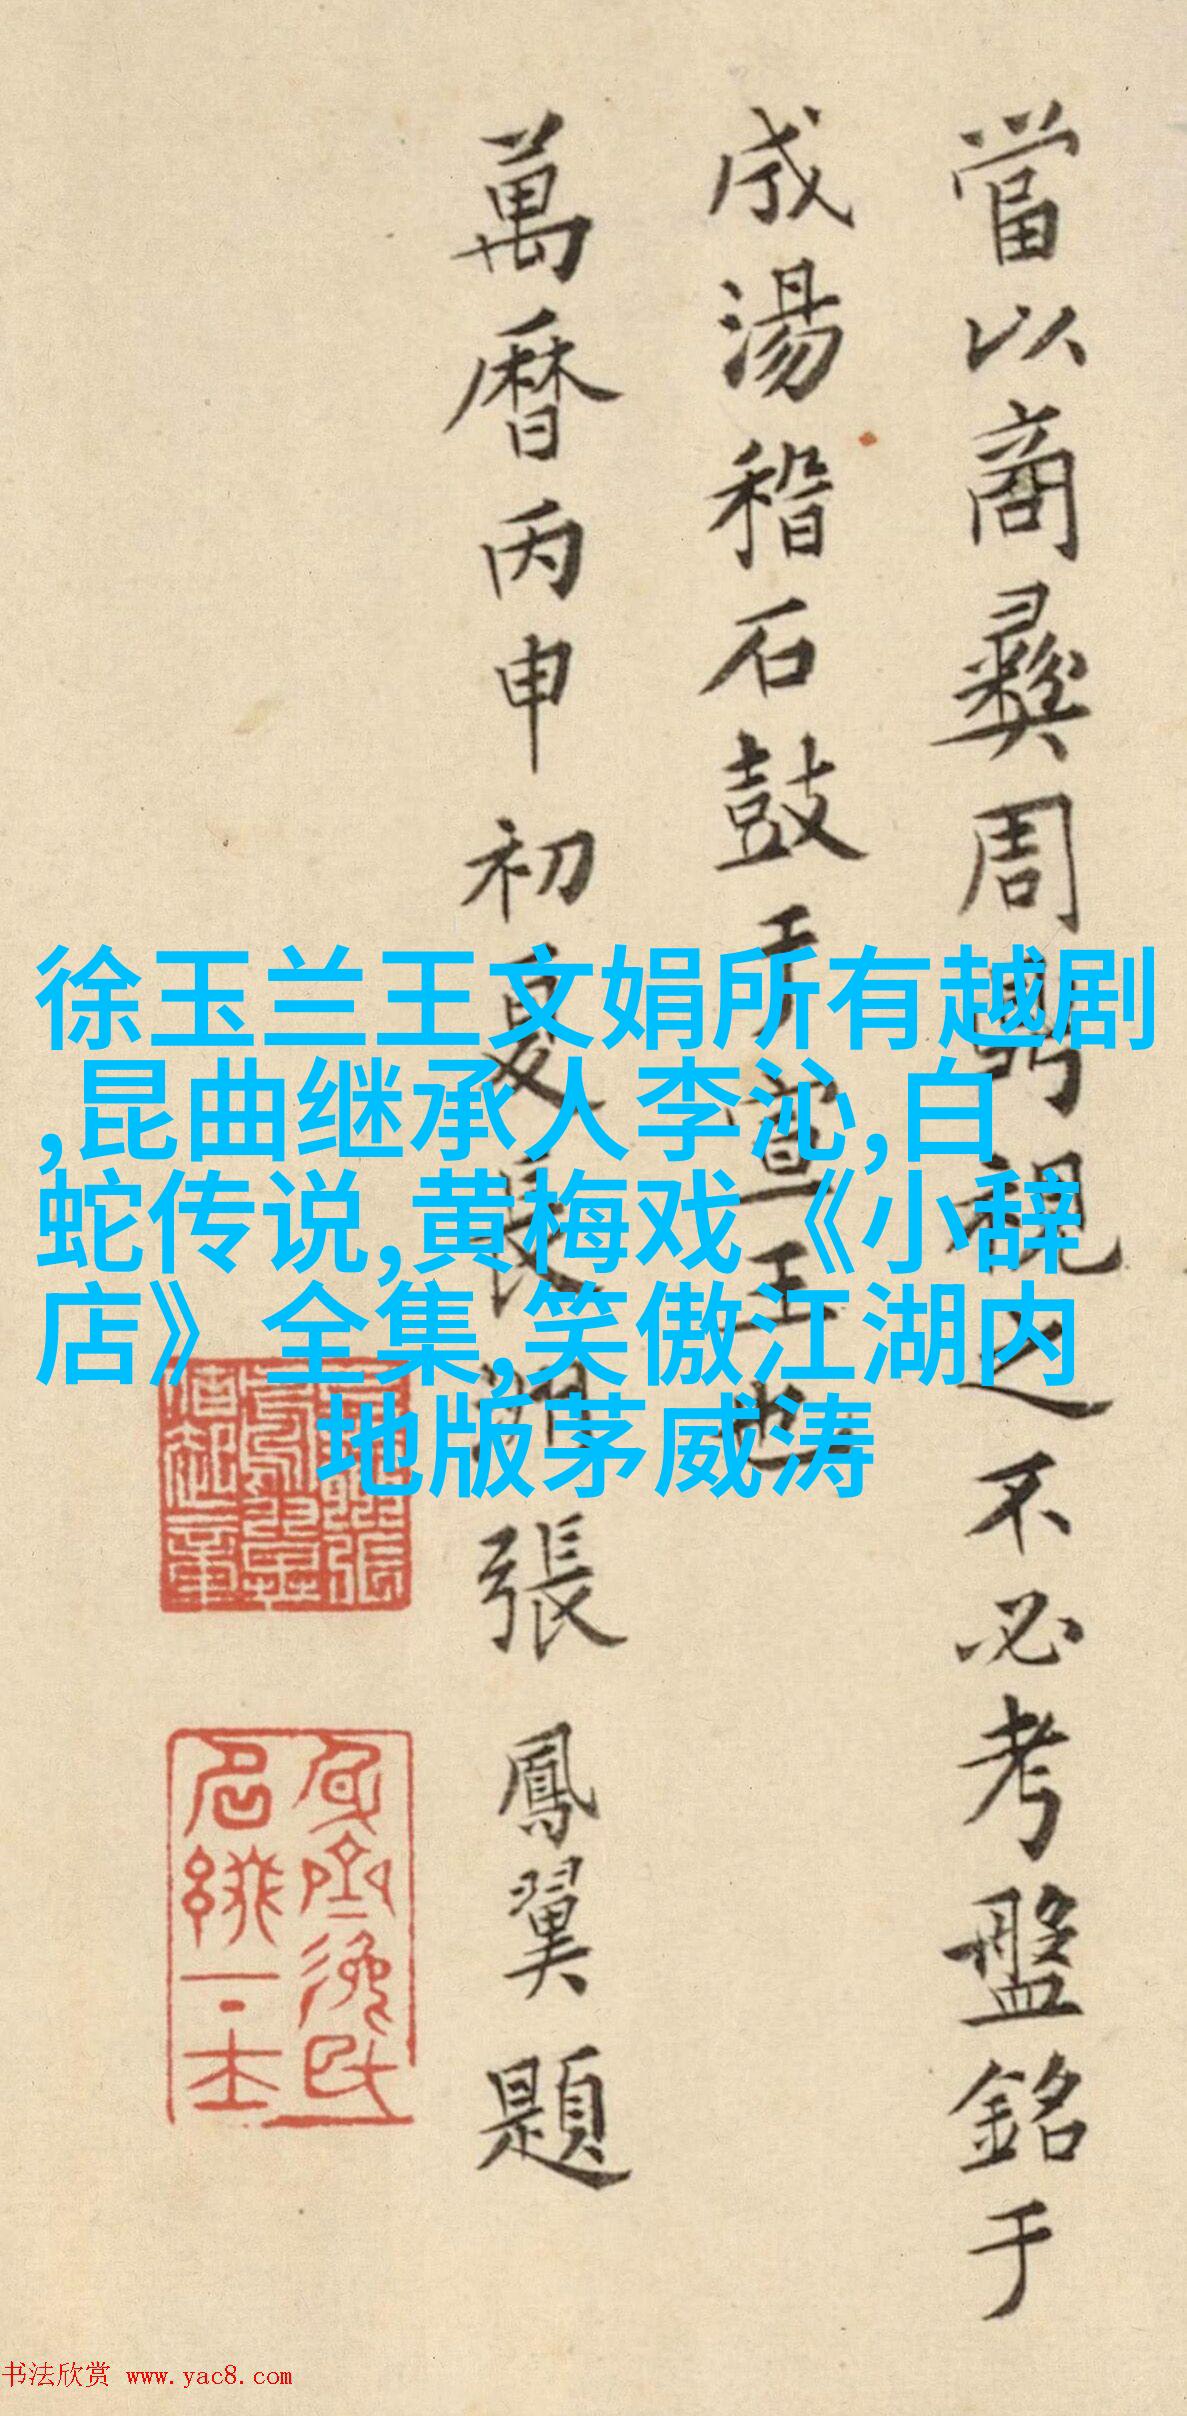 當以商彝周鼎視之不必考盤銘于
成湯稽石鼓于宣王也
萬曆丙申初夏長洲張鳳翼題
徐玉兰王文娟所有越剧
,昆曲继承人李沁,白
蛇传说,黄梅戏《小辞
店》全集,笑傲江湖内
地版茅威涛
书法欣赏 www.yac8.com